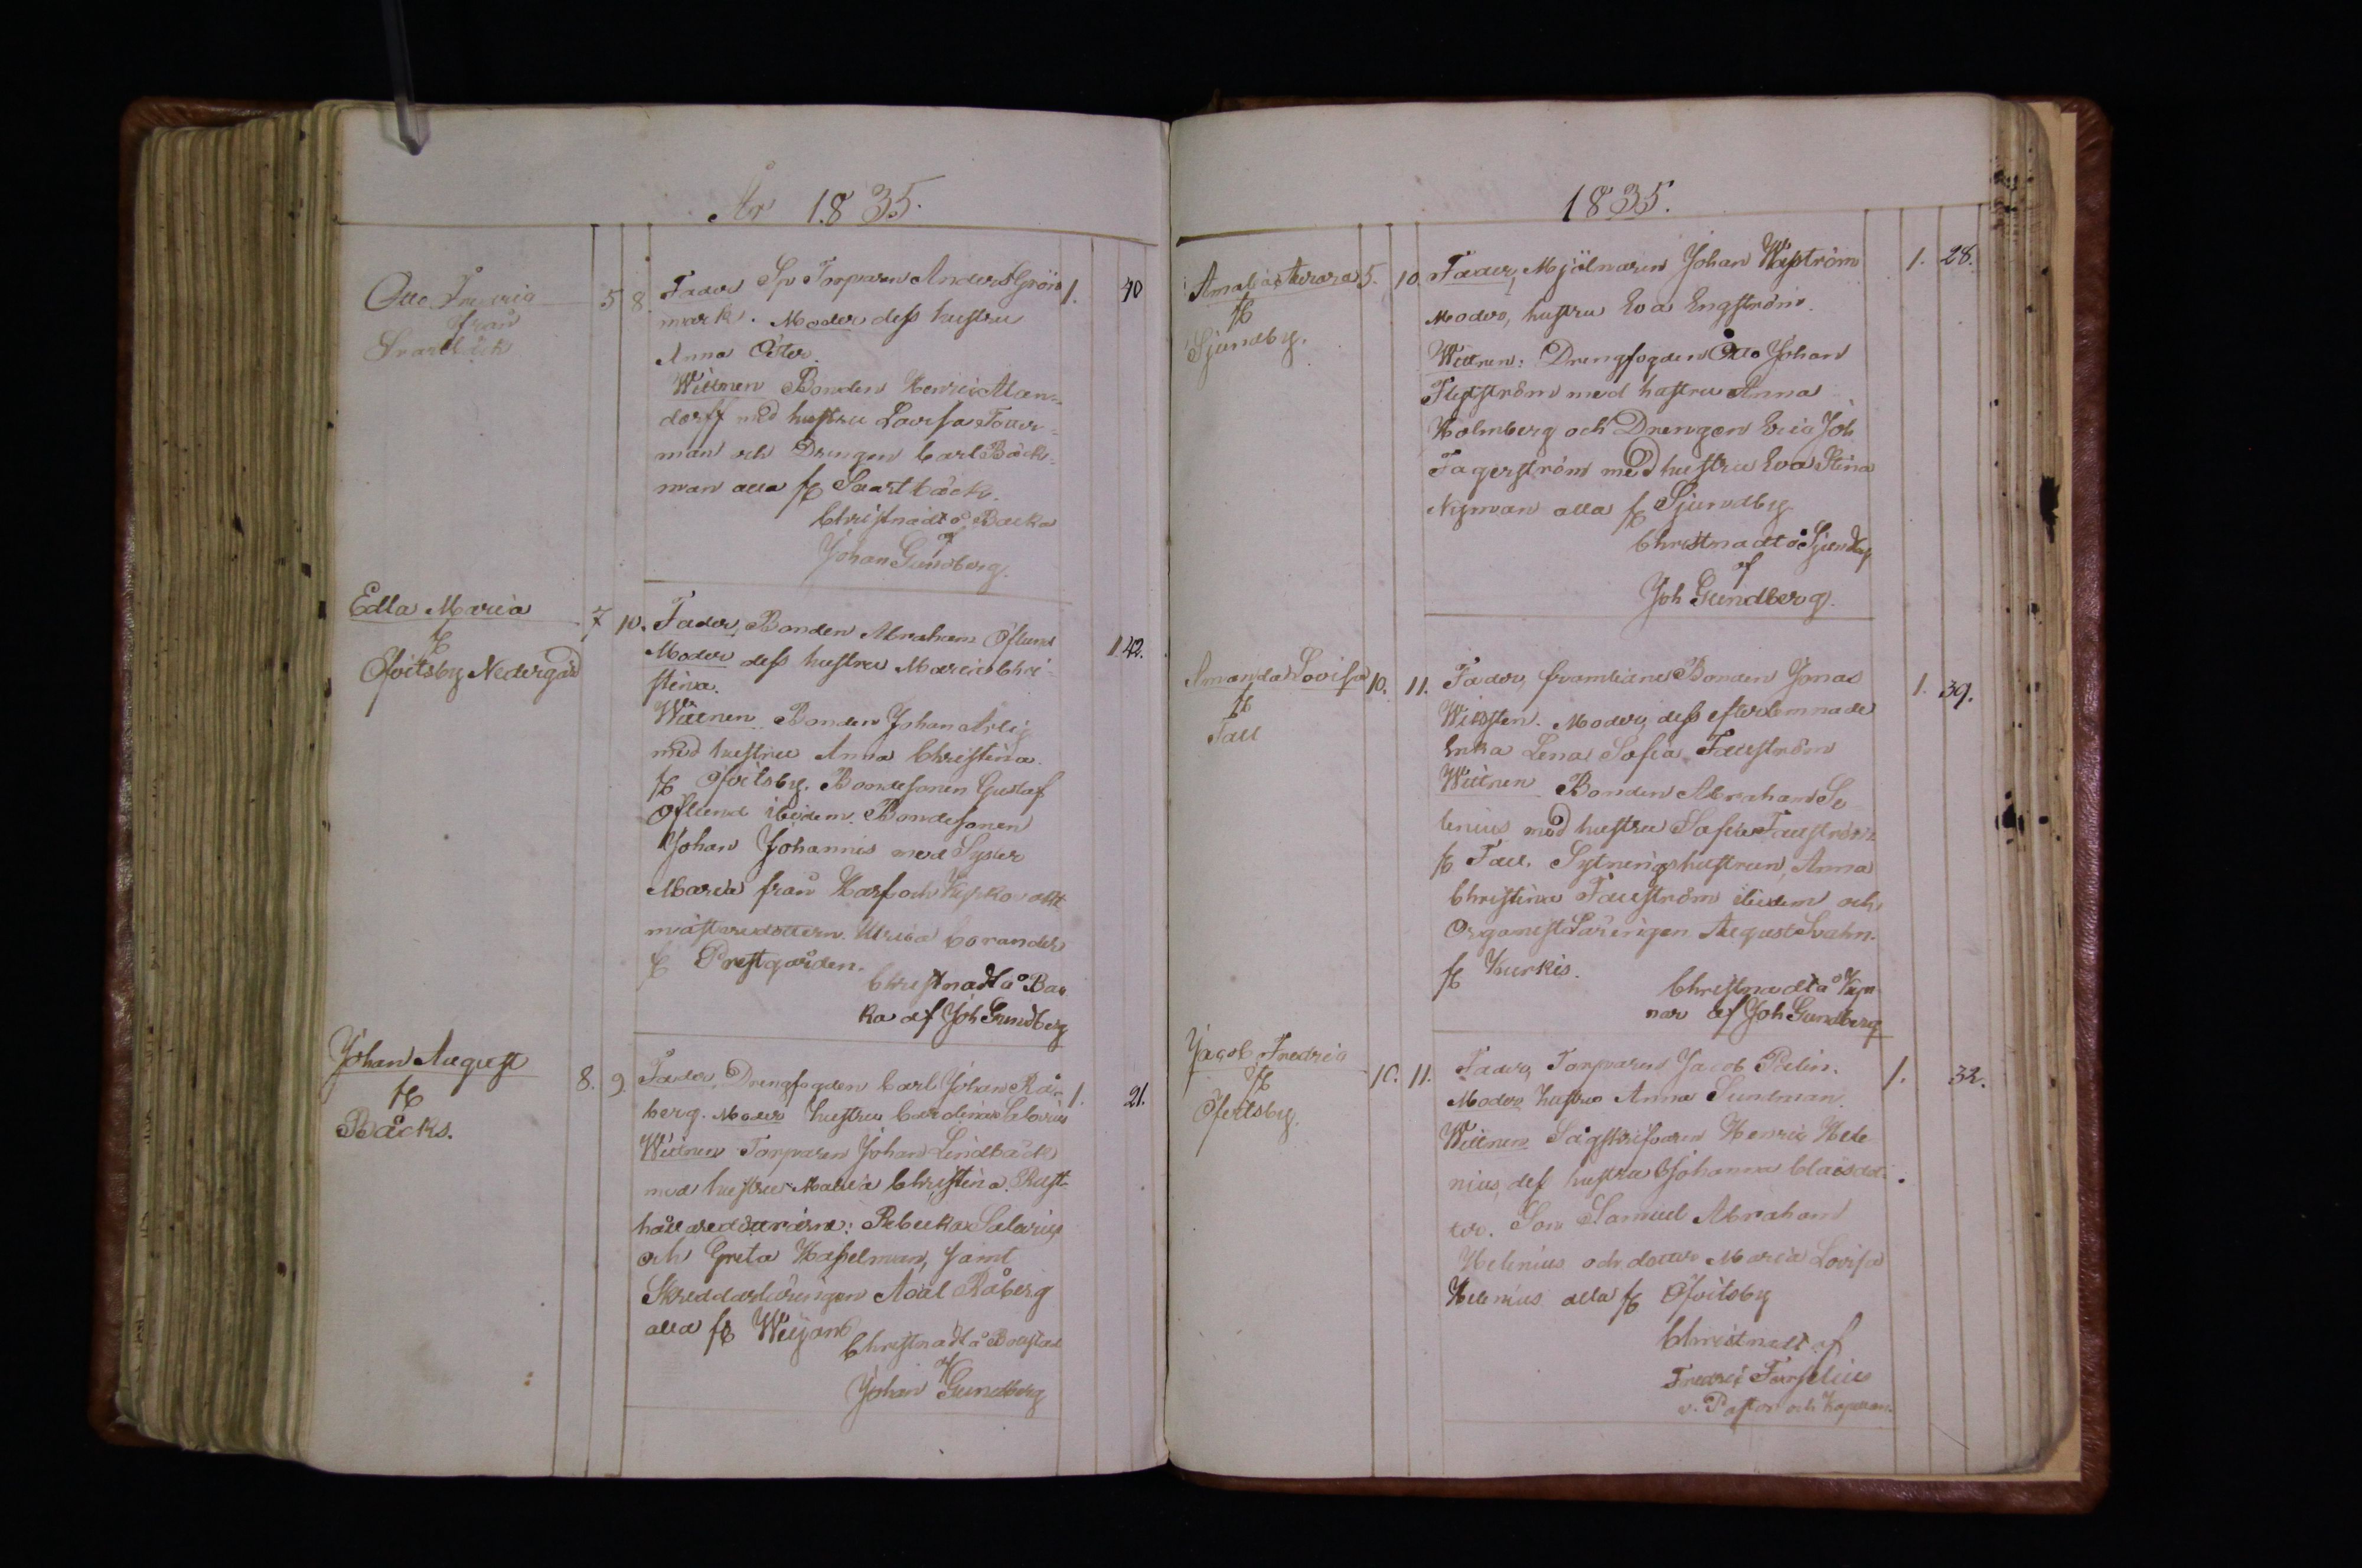 År 1835.
Otto Fredric
från
Svartbäck
5 8
Fader Sp Torparen Anders Grön
mark. Moder dess hustru
Anna Öster.
Wittnen Bonden Henric Alan-
dorff med hustru Lovisa Touer-
man och Drengen Carl Bäck-
man alla fr Svartbäck.
Christnadt å Backa
af
Johan Gundberg.
1. 40
Edla Maria
fr
Öfvitsby Nedergård
7 10.
Fader, Bonden Abraham Öflund
Moder dess hustru Maria Chri-
stina.
Wittnen Bonden Johan Arlig
med hustru Anna Christina
fr Öfvitsby. Bondesonen Gustaf
Öflund ibidem. Bondesonen
Johan Johannis med Syster
Maria från Harf och Kyrkovakt
mästaredottern Ulrica Corander
fr Prestgården.
Christnadt å Bac
ka af Joh Gundberg
1. 42.
Johan August
fr
Bäcks.
8. 9.
Fader, Drengfogden Carl Johan Rå-
berg. Moder hustru Carolina Salovius
Wittnen Torparen Johan Lindbäck
med hustru Maria Christina. Rust-
hållaredöttrarne: Rebecka Salovius
och Greta Hasselman, samt
Skreddarlärlingen Axel Råberg
alla fr Weijans
Christnadt å Boustad
af
Johan Gundberg
1. 21.
1835.
Amalia Aurora
fr
Sjundby.
5. 10.
Fader, Mjölnaren Johan Wiström
Moder, hustru Eva Engström.
Wittnen: Drengfogden Otto Johan
Flytström med hustru Anna
Holmberg och Drengen Eric Joh
Fagerström med hustru Eva Stina
Nyman alla fr Sjundby
Christnadt å Sjundby
af
Joh Gundberg.
1. 28.
Amanda Lovisa
fr
Tall
10. 11.
Fader, framlidne Bonden Jonas
Widsten. Moder, dess efterlemnade
Enka Lena Sofia Tallström
Wittnen Bonden Abraham Se
lenius med hustru Sofia Tallström
fr Tall. Sytningshustrun, Anna
Christina Tallström ibidem och
Organist Lärlingen August Svahn.
fr Kurkis.
Christnadt å
nar af Joh Gundberg
1. 39.
Jacob Fredric
fr
Öfvitsby.
10. 11.
Fader, Torparen Jacob Palin.
Moder hustru Anna Sundman.
Wittnen Sågskrifvaren Henric Hele
nius, dess hustru Johanna Claësdot-
ter. Son Samuel Abraham
Helenius och dotter Maria Lovisa
Helenius alla fr Öfvitsby
Christnadt af
Fredric Forselius
v. Pastor och Kapellan.
1. 32.